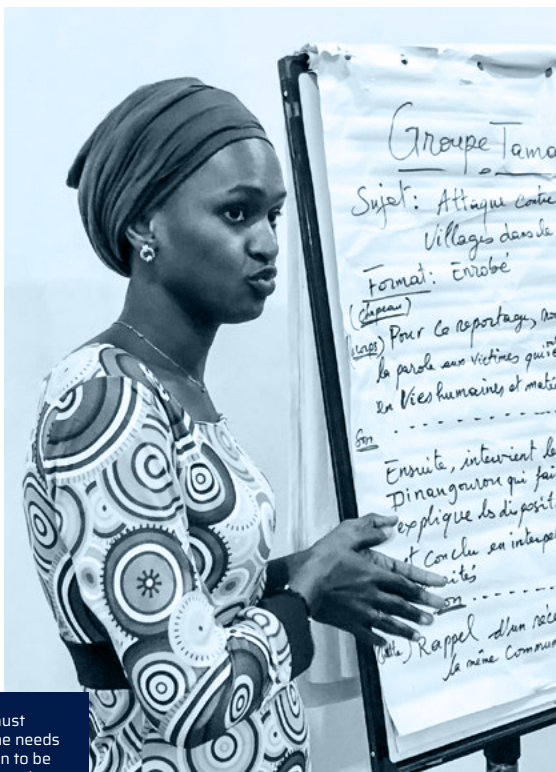 Groupe Tama
Sujet: Attaque contre
Villages dans le
Format: Enrobé
(chapeau)
(corps) Pour ce reportage, nou
la parole aux victimes qui
en Vies humaines et maté
Son - - - - - - - -
Ensuite, intervient le
Dinangourou qui fai
explique les disposit
t conclu en interpe
rités
on - - - - - -
Rappel d'un réce
la même Commun
ust
e needs
n to be